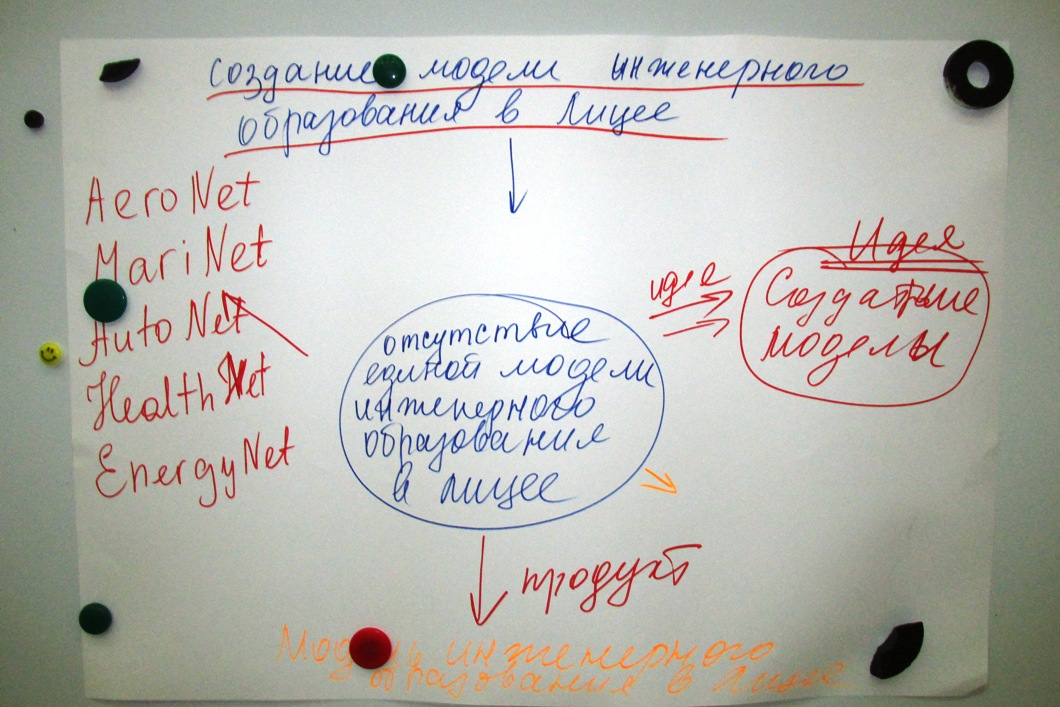 Создание модели инженерного
образования в лицее
AeroNet
MariNet
AutoNet
HealthNet
EnergyNet
отсутствие
единой модели
инженерного
образования
в лицее
идея
Идея
Создание
модели
продукт
Модель инженерного
образования в лицее